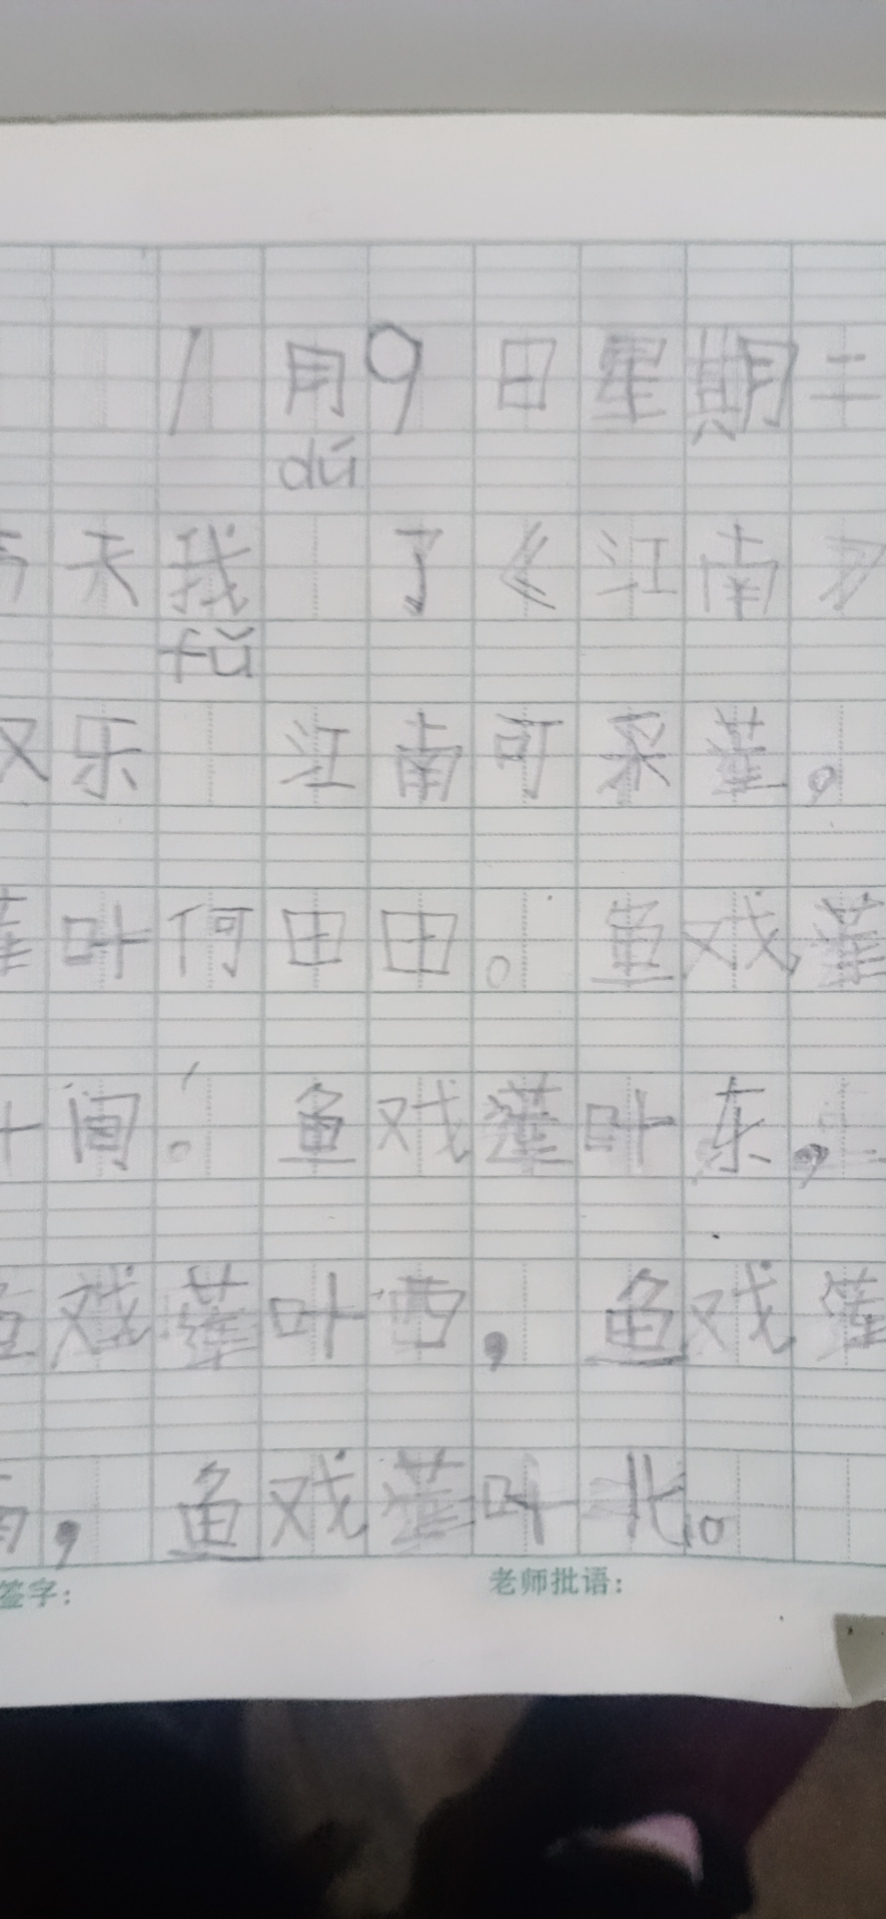 1月9日星期二
dú
天我 了《江南》
fǔ
汉乐 江南可采莲。
莲叶何田田。鱼戏莲
叶间。鱼戏莲叶东,
鱼戏莲叶西,鱼戏莲
南,鱼戏莲叶北。
签字: 老师批语: